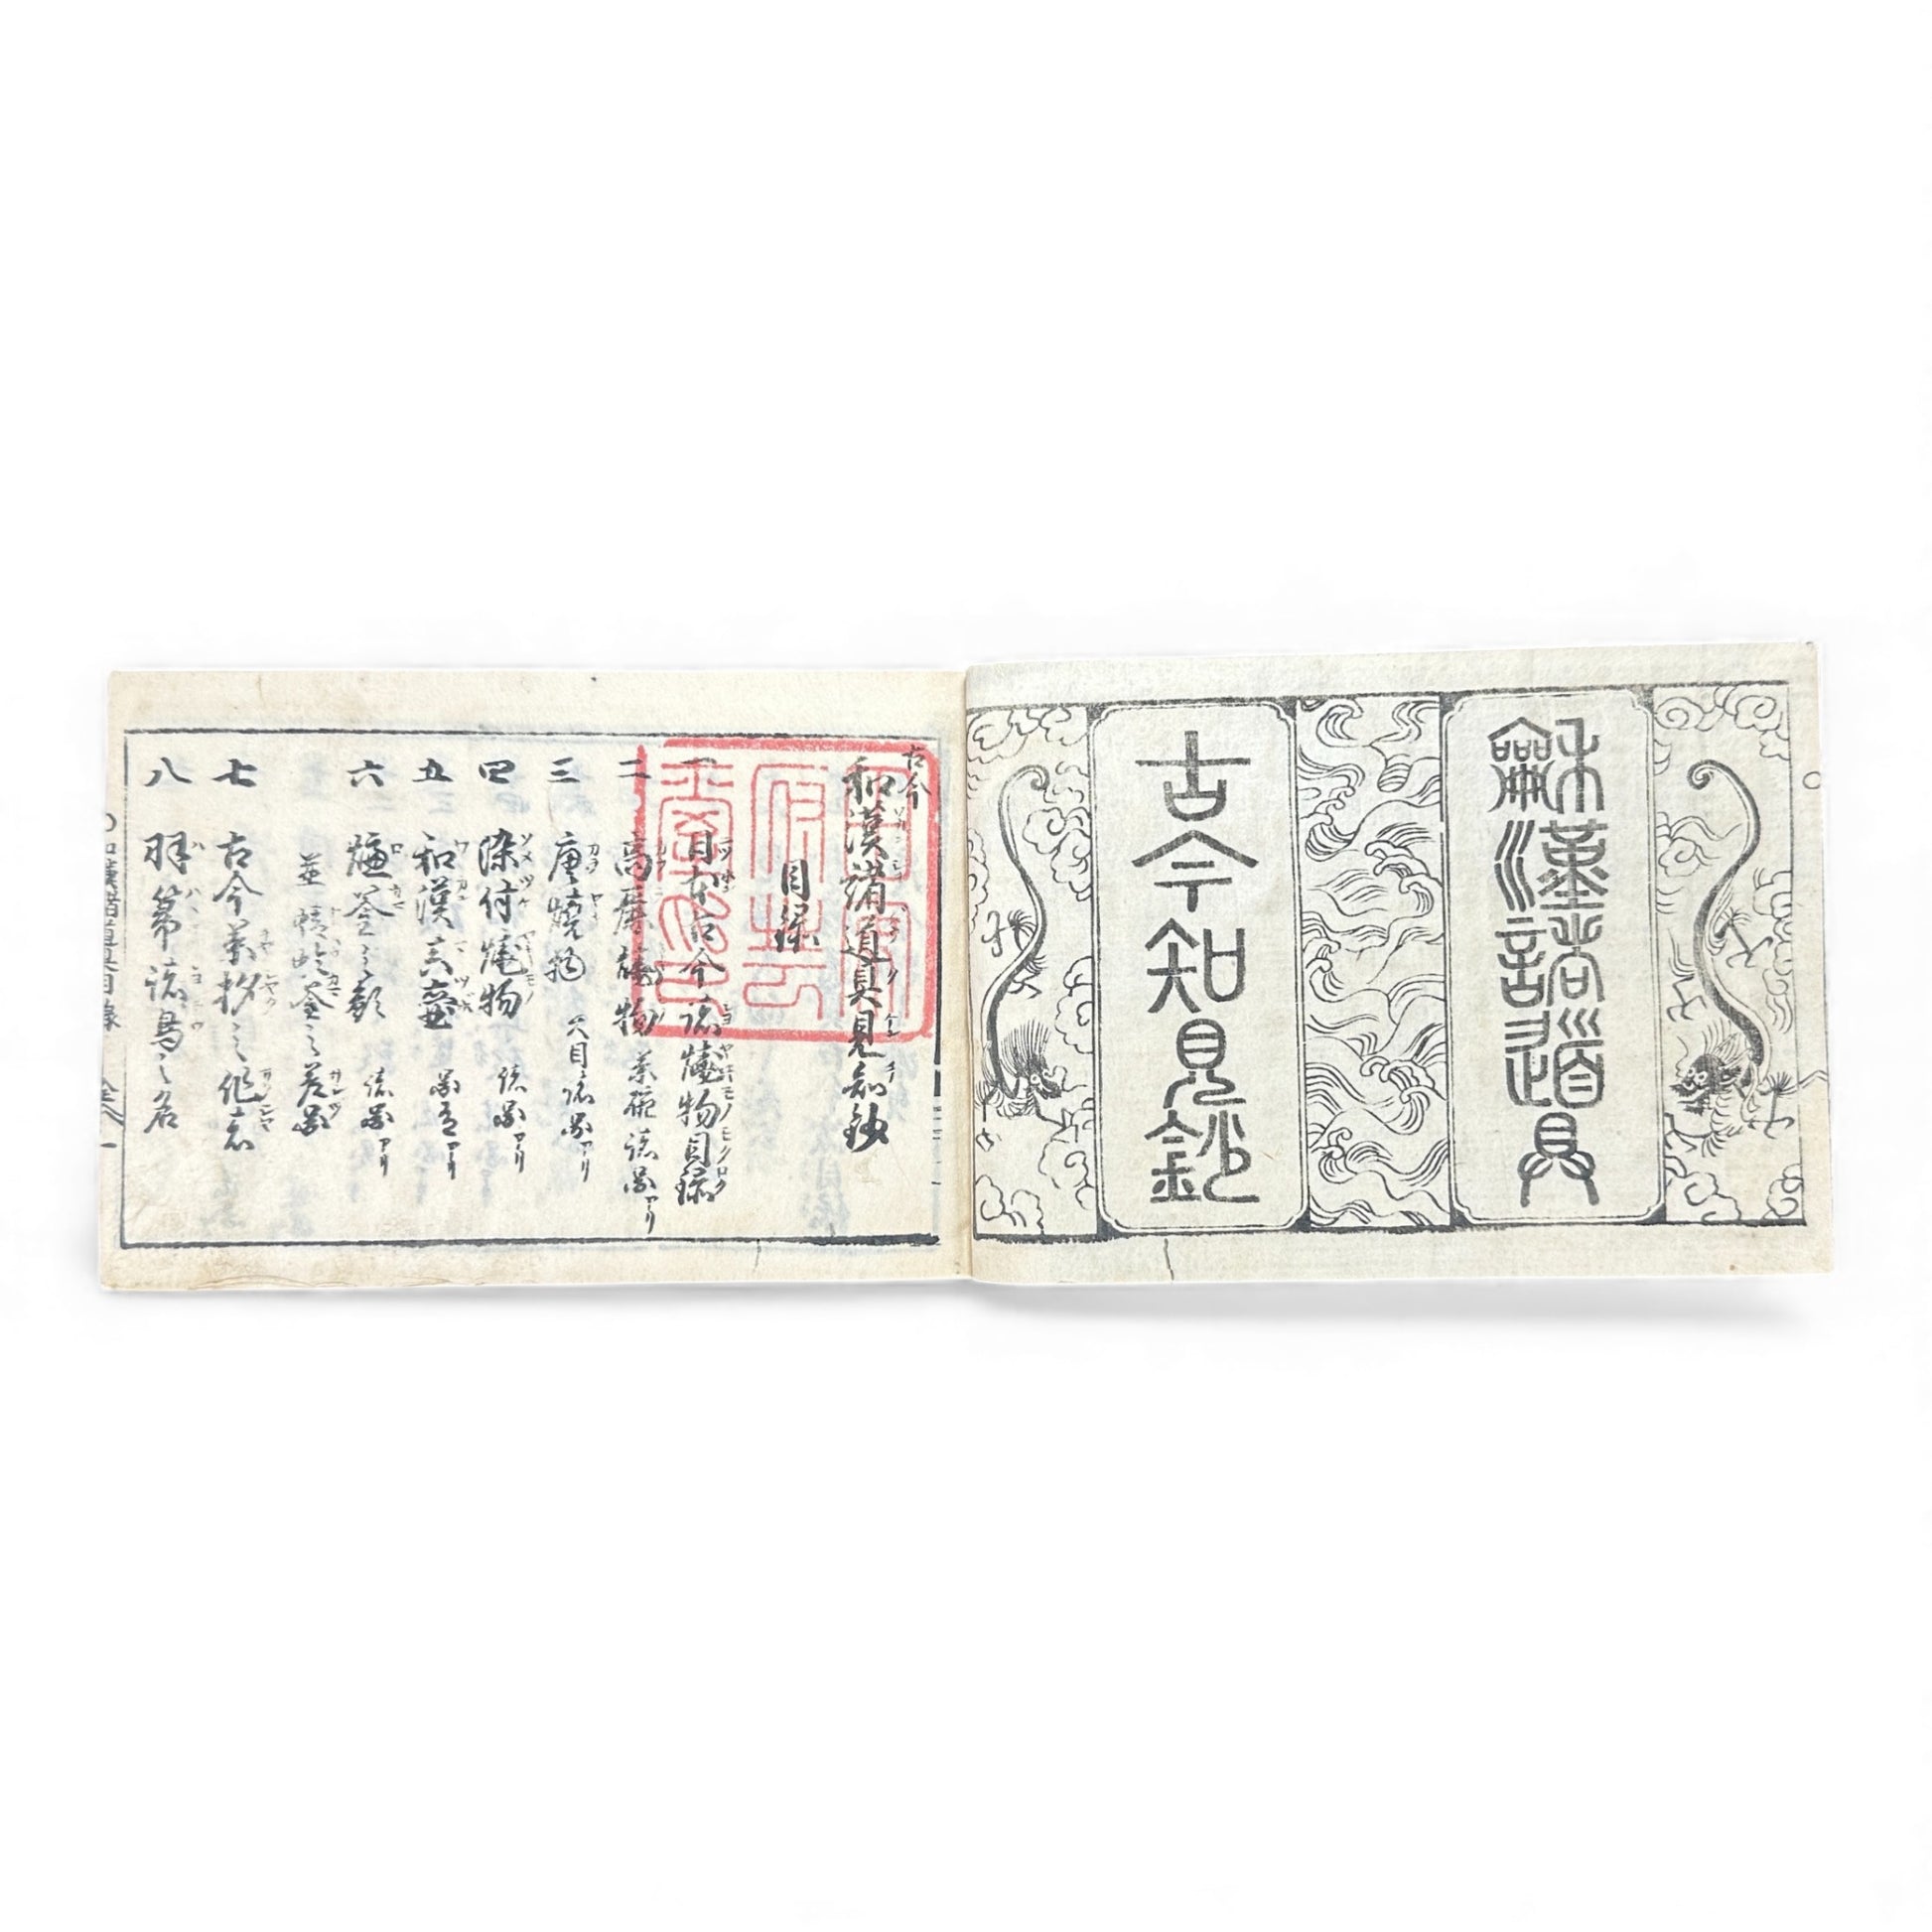 龢漢諸道具
古今知見鈔
古今
和漢諸道具見知鈔
目録
一 日本古今諸焼物目録
二 高麗焼物 茶碗諸図アリ
三 唐焼物 天目諸図アリ
四 染付焼物 諸図アリ
五 和漢真壷 図有アリ
六 爐釜之類 諸図アリ
七 古今茶杓之作者
八 羽箒諸鳥之名
和漢諸道具目録